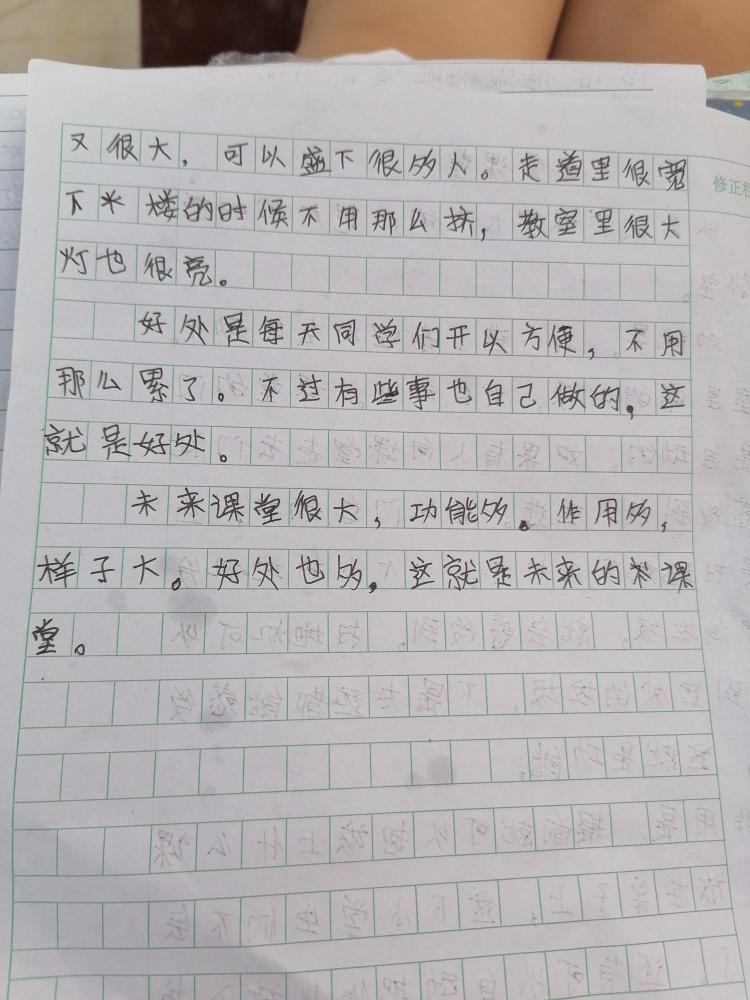 又很大，可以盛下很多人。走道里很宽
下米楼的时候不用那么挤，教室里很大
灯也很亮。
好处是每天同学们开以方便，不用
那么累了。不过有些事也自己做的，这
就是好处。
未来课堂很大，功能多。作用多，
样子大。好处也多，这就是未来的课
堂。
修正